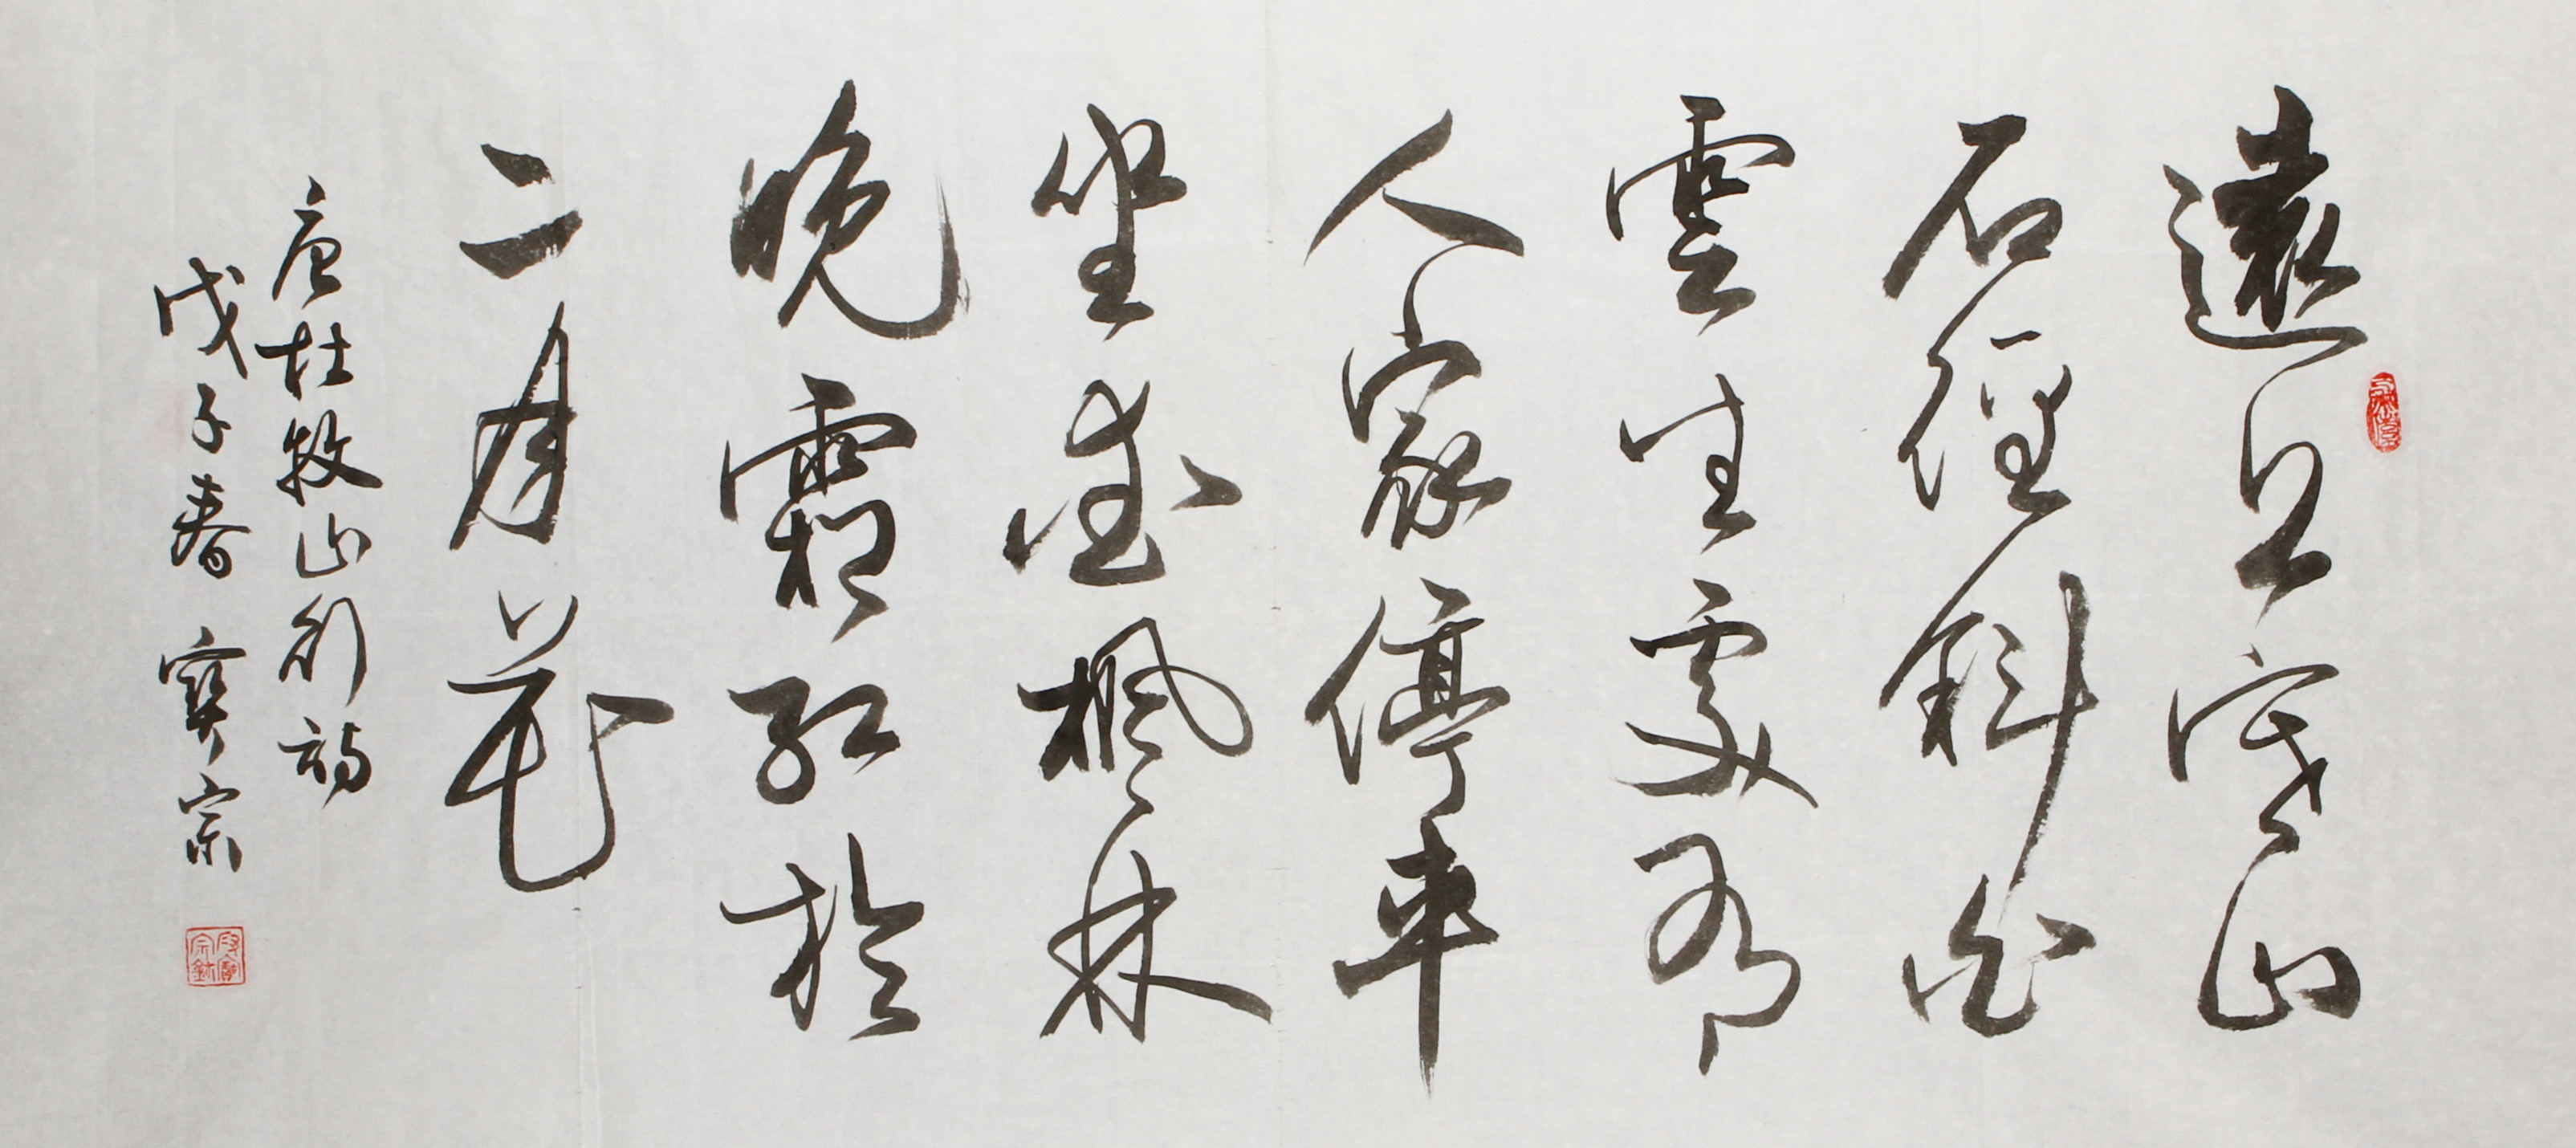 遠上寒山
石徑斜白
雲生處有
人家停車
坐愛楓林
晚霜紅於
二月花
唐杜牧山行詩
戊子春 寶宗